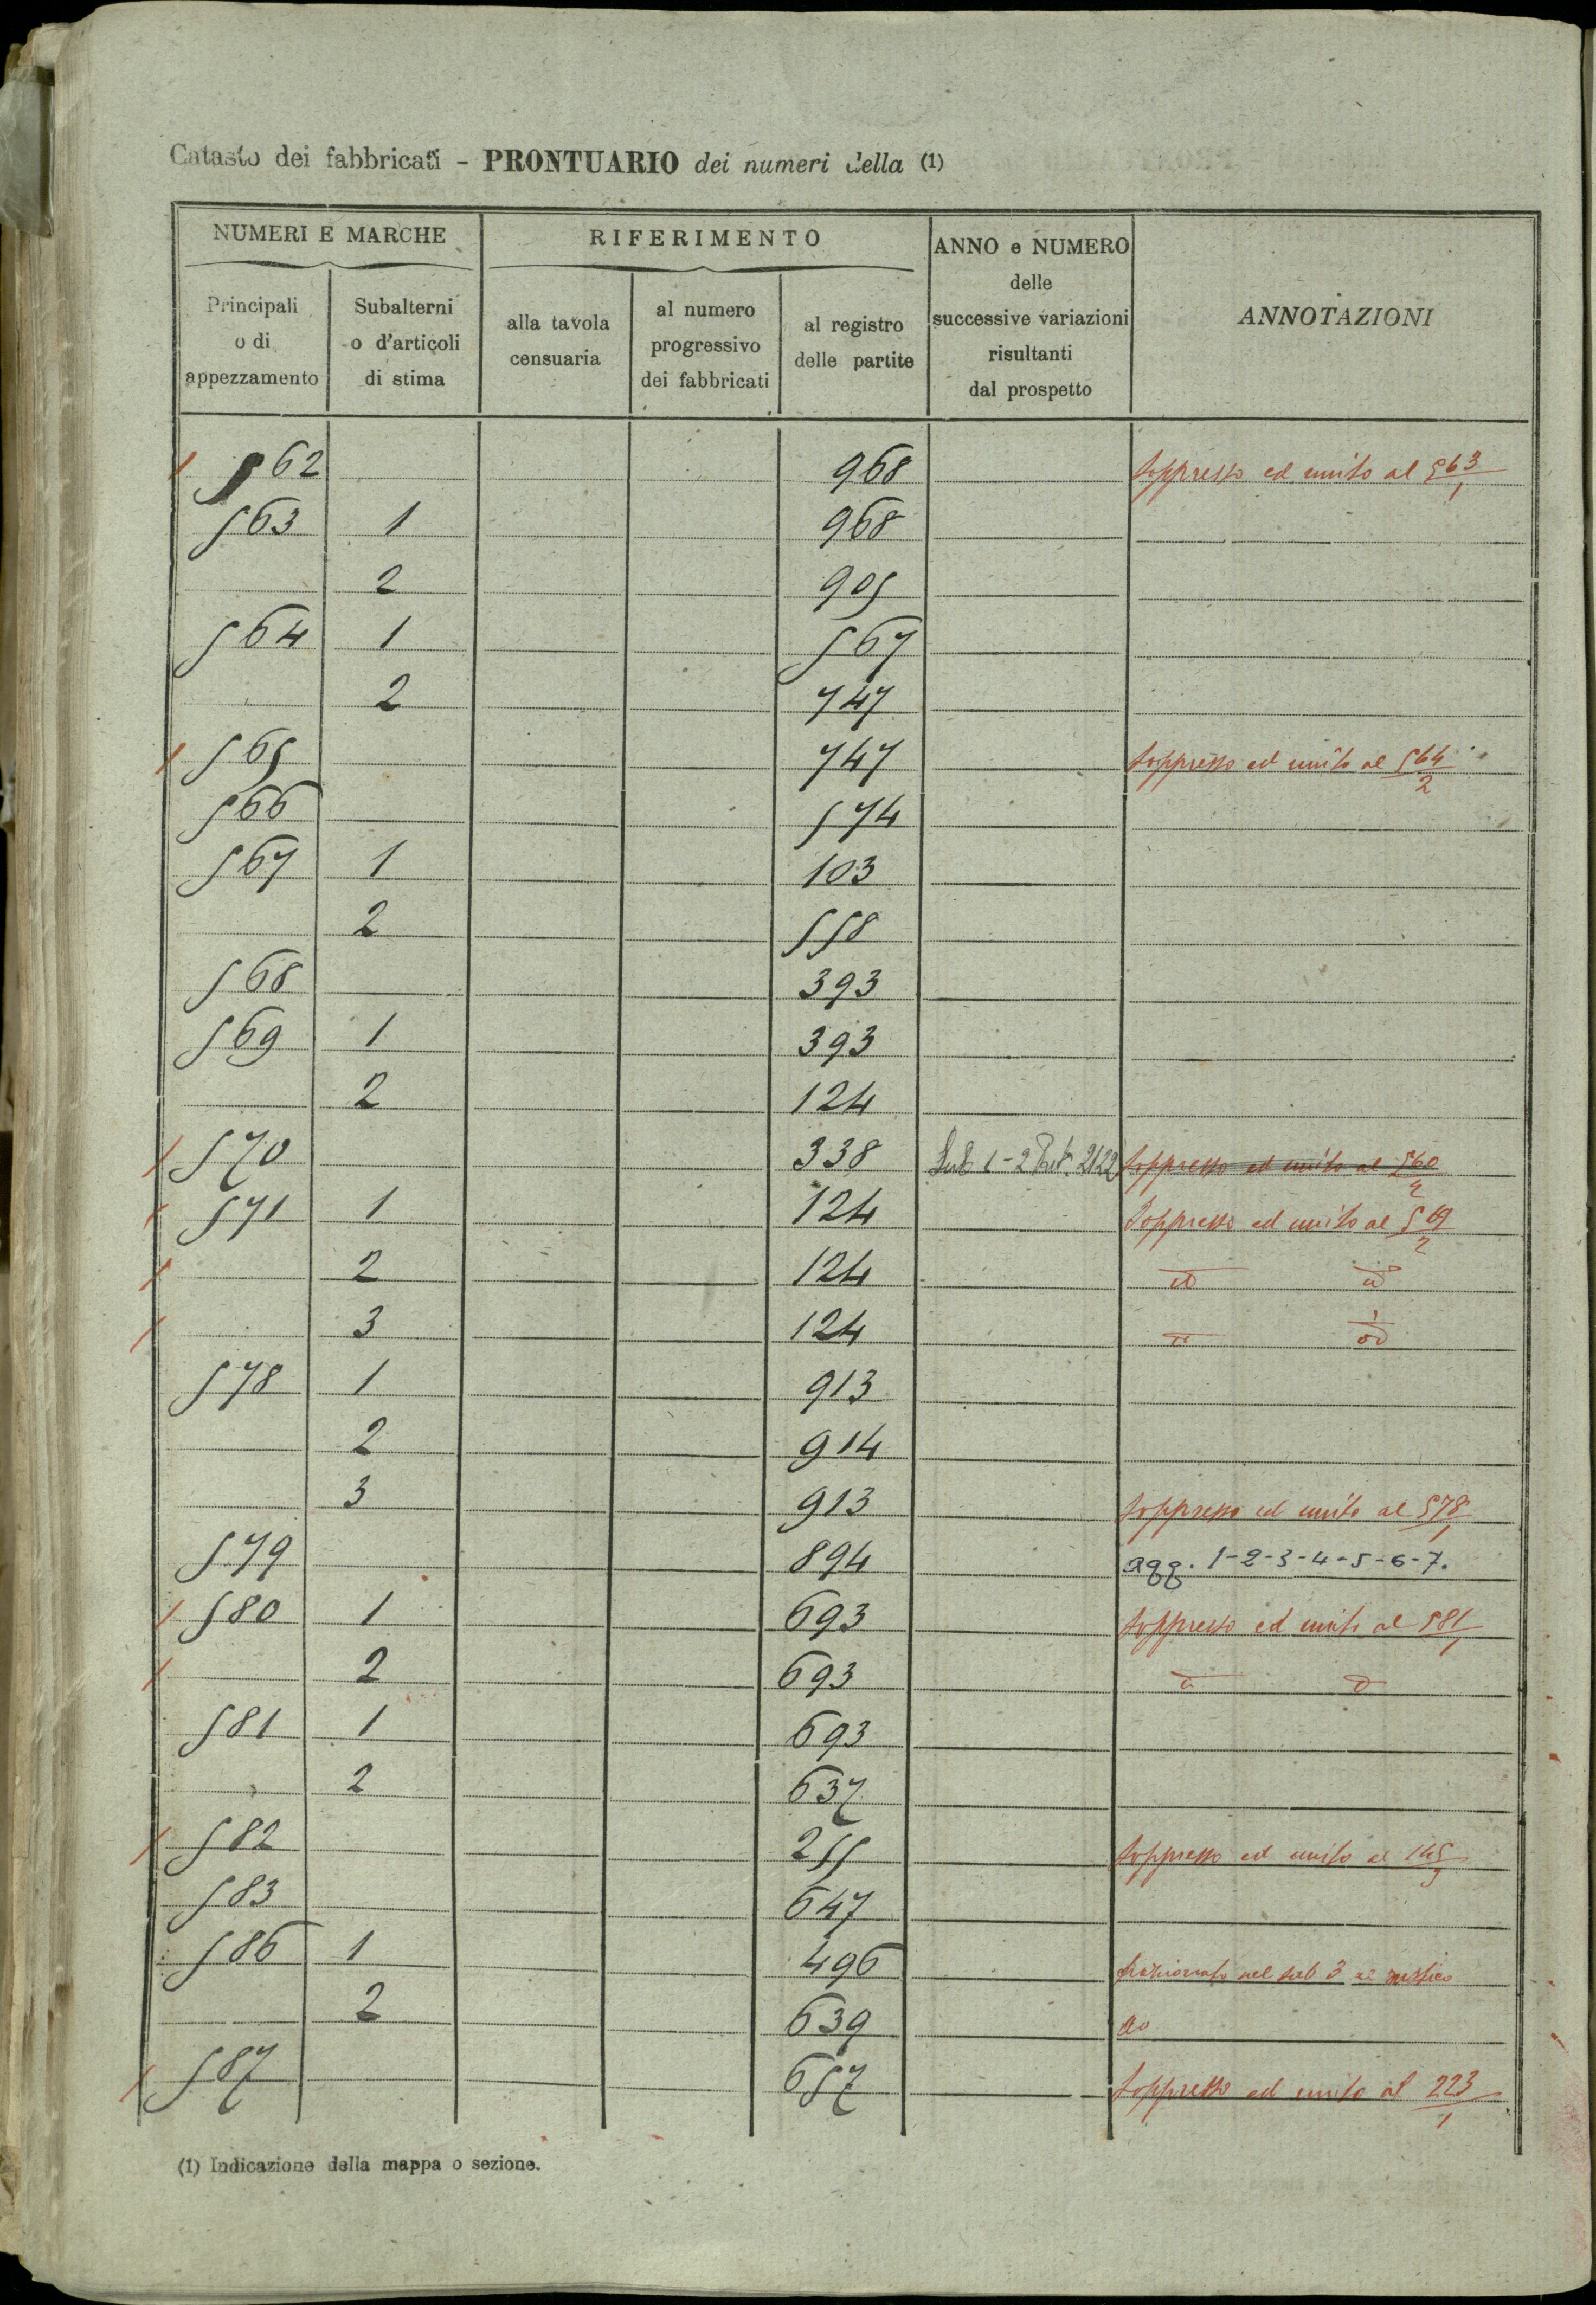 Catasto dei fabbricati - PRONTUARIO dei numeri della (1)
NUMERI E MARCHE
RIFERIMENTO
ANNO e NUMERO
delle
successive variazioni
risultanti
dal prospetto
ANNOTAZIONI
Principali
o di
appezzamento
Subalterni
o d'articoli
di stima
alla tavola
censuaria
al numero
progressivo
dei fabbricati
al registro
delle partite
562 968 soppresso ed unito al 563/1
563 1 968
2 905
564 1 567
2 747
565 747 soppresso ed unito al 564/2
566 574
567 1 103
2 558
568 393
569 1 393
2 124
570 338 Sub 1-2 Part. 2122 soppresso ed unito al 560
571 1 124 Soppresso ed unito al 569/2
2 124 id id
3 124
578 1 913
2 914
3 913 soppresso ed unito al 578/1
579 894 agg. 1-2-3-4-5-6-7.
580 1 693 soppresso ed unito al 581/1
2 693
581 1 693
2 637
582 255 soppresso ed unito al 145
583 647
586 1 496 frazionato nel sub 3
2 639 do
587 657 soppresso ed unito al 223/1
(1) Indicazione della mappa o sezione.